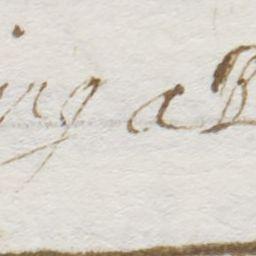 ing a B